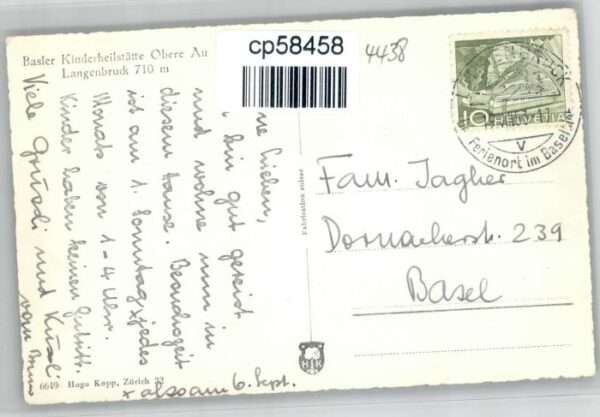 Basler Kinderheilstätte Obere Au
Langenbruck 710 m
cp58458
4438
ne Lieben,
bin gut gereist
und wohne nun in
diesem Hause. Besuchszeit
ist am 1. Sonntag x jedes
Monats von 1-4 Uhr.
Kinder haben keinen Zutritt.
Viele Grüessli und Küssli
vom
x also am 6. Sept.
6649 Hugo Kopp, Zürich
Fabrication suisse
HELVETIA
10
V
Ferienort im Basel
Fam. Jagher
Dornacherstr. 239
Basel